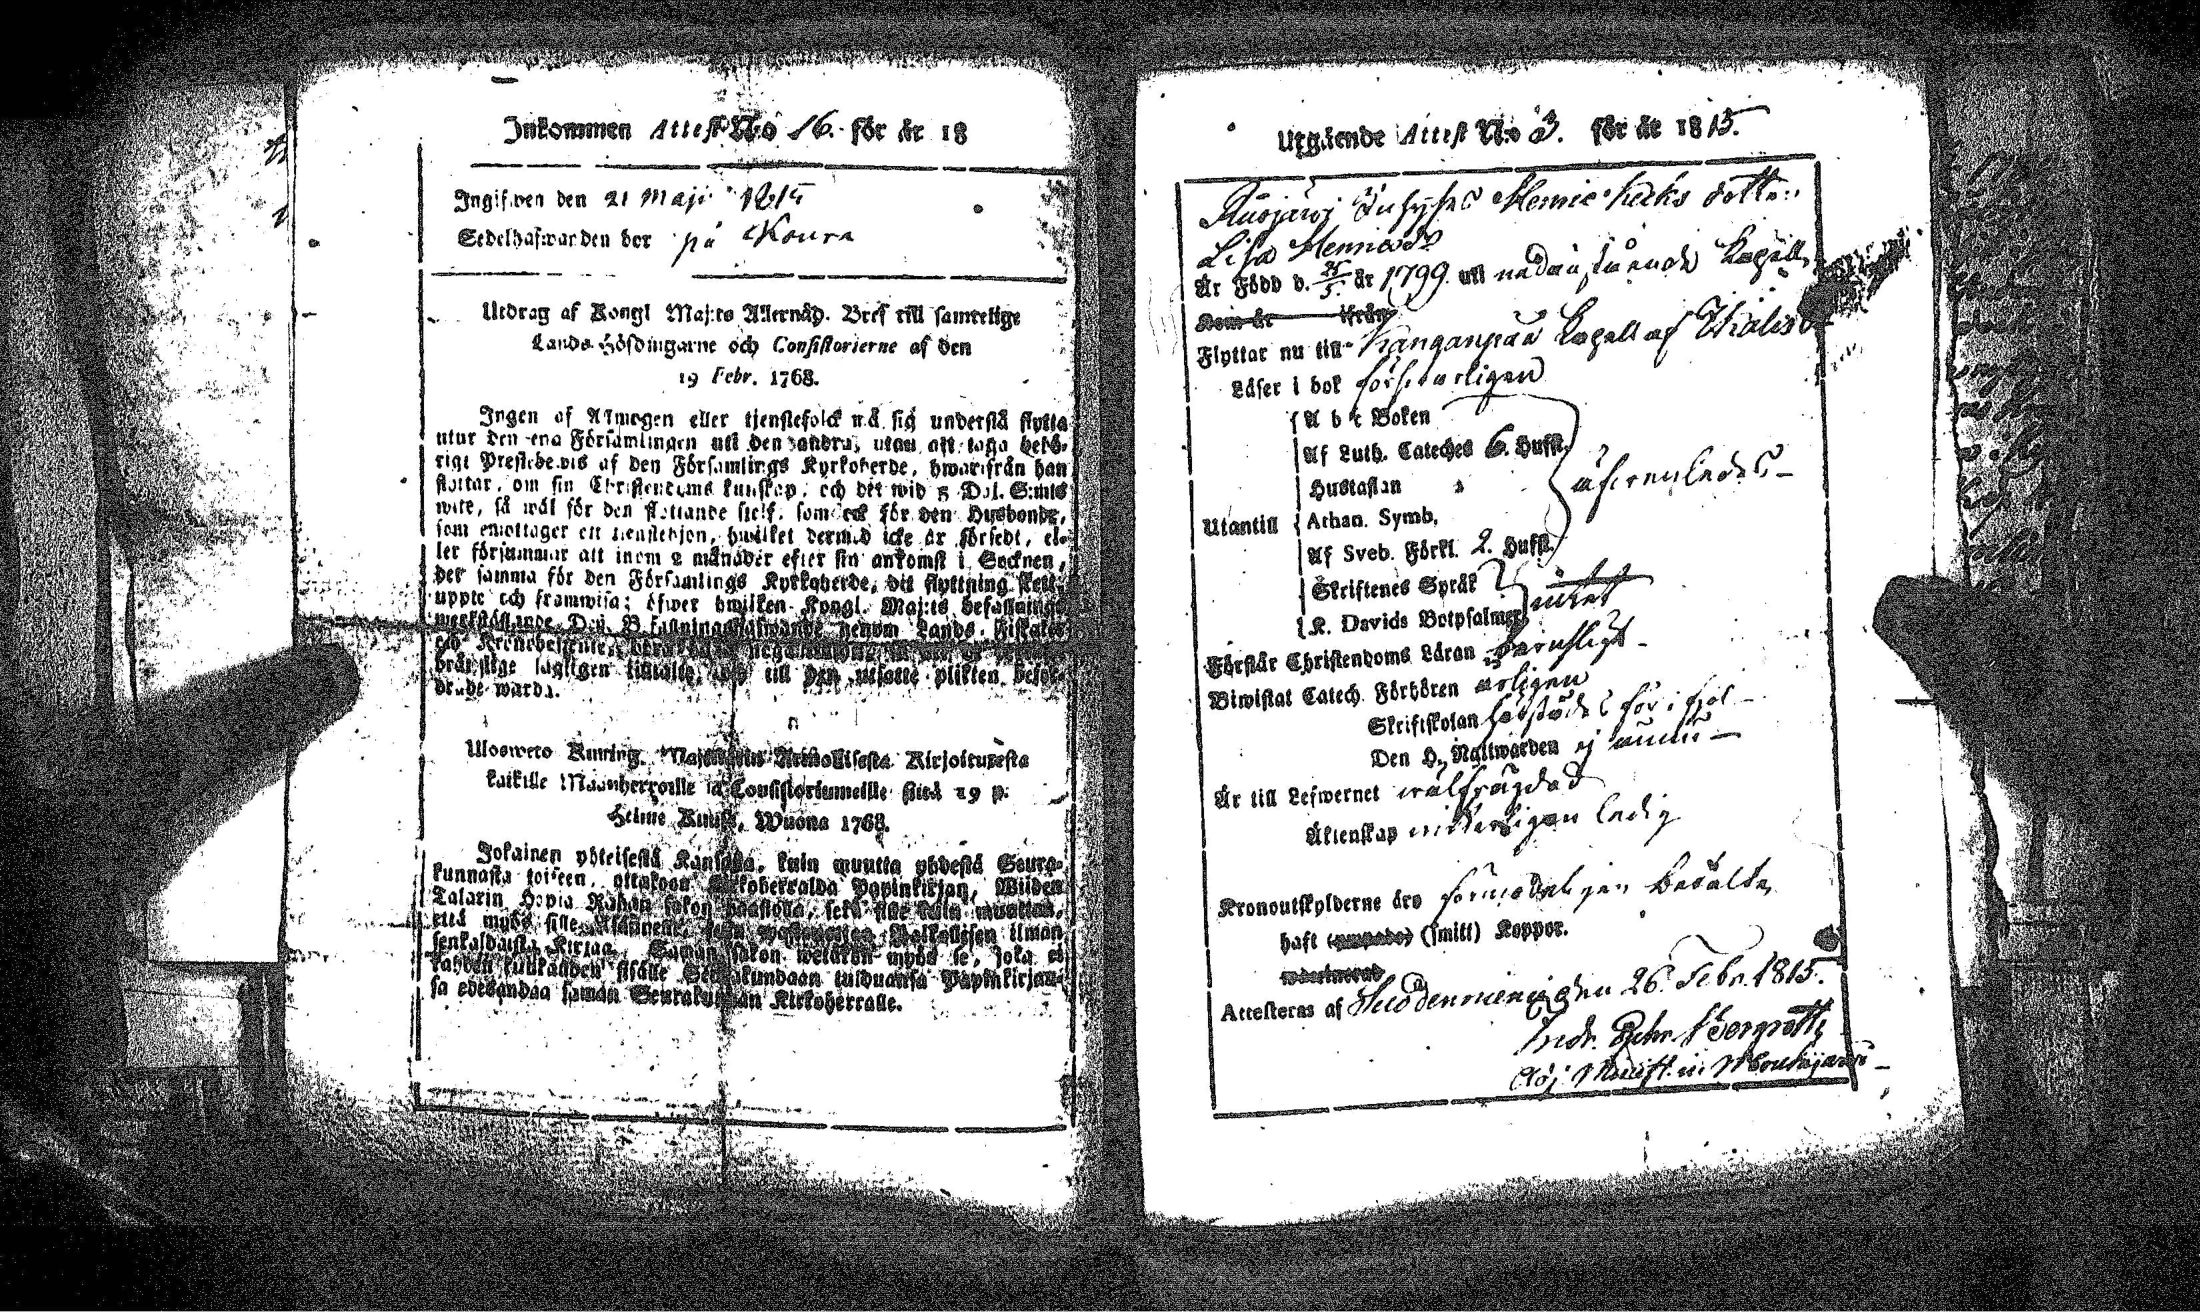 Inkommen Attest No 16. för år 18
Ingifwen den 21 Maji 1815
Sedelhafwarden bor på Koura
Utdrag af Kongl Maj:ts Allernåd. Bref till samtelige
Lands-Höfdingarne och Consistorierne af den
19 Febr. 1768.
Ingen af Allmogen eller tjenstefolck må sig understå flytta
utur den ena Församlingen uti den andra, utan att taga behö-
rigt Prestebevis af den Församlings Kyrkoherde, hwarifrån han
flyttar, om sin Christendoms kunskap, och det wid 5 Dal. S:mts
wite, så wäl för den flyttande sjelf, som ock för den Husbonde,
som emottager ett tienstehjon, hwilket dermed icke är försedt, el-
ler försummar att inom 2 månader efter sin ankomst i Socknen,
det samma för den Församlings Kyrkoherde, dit flyttning skett,
uppte och framwisa; öfwer hwilken Kongl. Maj:ts befallning
werkställande Dess Befallningshafwande genom Lands-Fiskaler
och Kronobetjente,
lagligen till den utsatte plikten befor-
drade warda.
Ulosweto Kuning. Majestetin Armollisesta Kirjoituxesta
kaikille Maanherroille ja Consistoriumeille siitä 19 p:
Helme Kuusa, Wuona 1768.
Jokainen yhteisestä Kansasta, kuin muutta yhdestä Seura-
kunnasta toiseen, ottakoon Kirkoherralda Papinkirjan, Wiiden
Talarin Hopia Rahan sakon haastolla, sekä sille kuin muuttaa,
että myös sille Isännelle, joka Palkollisen ilman
senkaldaista Kirjaa. Saman sakon wetäkön myös se, joka ei
kahden kuukauden sisälle Seurakundaan tulduansa Papinkirjan-
sa edesandaa saman Seurakunnan Kirkoherralle.
Utgående Attest No 3. för år 1815.
dotter
Lisa
Är Född d. 25/5 år 1799. uti nedanstående Kapell
Kom år ifrån
Flyttar nu till Kanganpää Kapell af
Läser i bok försvarligen
A b c Boken
Af Luth. Cateches 6. Hufst.
Hustaflan
Utantill
Athan. Symb.
Af Sveb. Förkl. 2. Hufst.
Skriftenes Språk
K. Davids Botpsalmer
intet
Förstår Christendoms Läran
Biwistat Catech. Förhören årligen
Skriftskolan
Den H. Nattwarden ej
Är till Lefwernet wälfrägdad
Äktenskap ledig
Kronoutskylderne äro förmodeligen betalte
haft (smitt) Koppor.
Attesteras af Suodenniemi den 26. Febr. 1815.
Bergroth
Adj. Minist. in Mouhijärvi